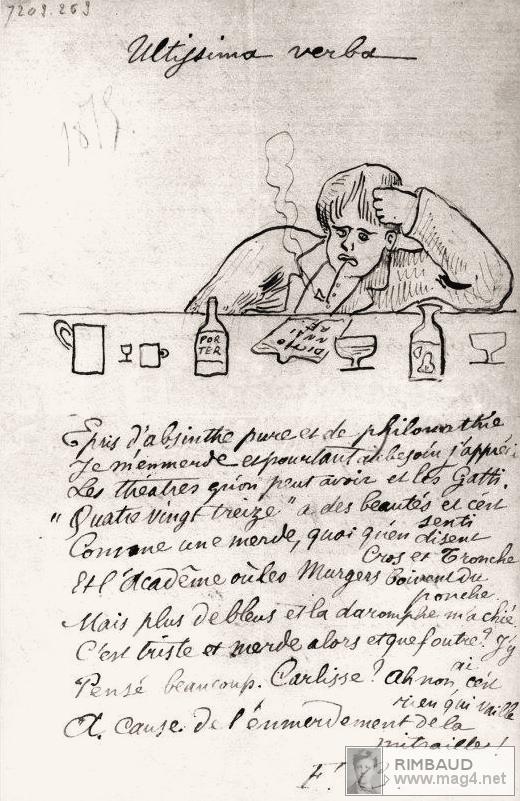 7203.259
Ultissima verba
1875.
POR
TER
DICTIO
NNAI
RE
Épris d'absinthe pure et de philomathie
Je m'enmerde et pourtant au besoin j'apprécie
Les théâtres qu'on peut avoir et les Gatti.
"Quatre vingt treize" a des beautés et c'est senti
Comme une merde, quoi qu'en disent Cros et Tronche
Et l'Acadême où les Murgers boivent du ponche.
Mais plus de bleus et la daromphe m'a chié.
C'est triste et merde alors et que foutre? J'y ai
Pensé beaucoup. Carlisse? Ah non, c'est rien qui vaille
À cause de l'enmerdement de la mitraille!
F.
RIMBAUD
www.mag4.net